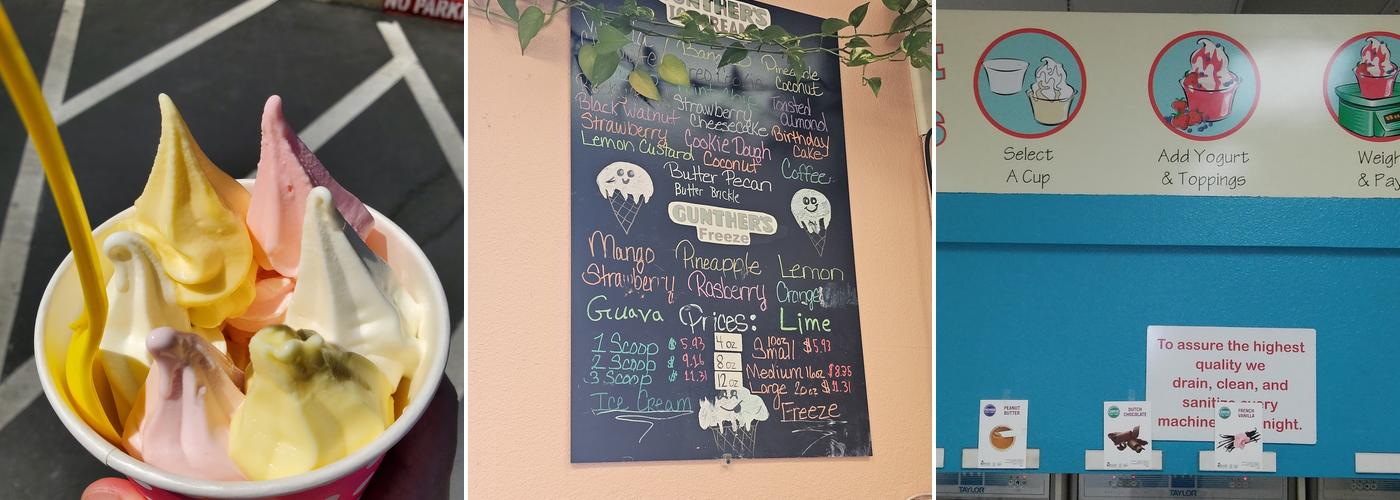 NO PARKI
GUNTHER'S
ICE CREAM
Pineapple
Coconut
Black Walnut
Strawberry
Cheesecake
Toasted
almond
Strawberry
Cookie Dough
Birthday
Cake
Lemon Custard
Coconut
Coffee
Butter Pecan
Butter Brickle
GUNTHER'S
Freeze
Mango
Pineapple
Lemon
Strawberry
Rasberry
Orange
Guava
Prices:
Lime
1 Scoop $5.93
2 Scoop $9.16
3 Scoop $11.31
4 oz
8 oz
12 oz
Small 10oz $5.93
Medium 16oz $8.35
Large 20oz $11.31
Ice Cream
Freeze
Select
A Cup
Add Yogurt
& Toppings
Weigh
& Pay
To assure the highest
quality we
drain, clean, and
sanitize every
machine night.
PEANUT
BUTTER
DUTCH
CHOCOLATE
FRENCH
VANILLA
TAYLOR
TAYLOR